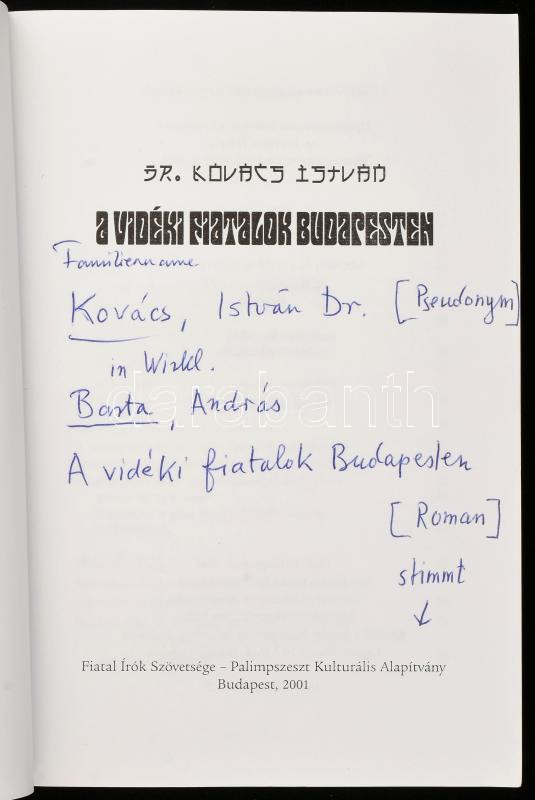 DR. KOVÁCS ISTVÁN
A VIDÉKI FIATALOK BUDAPESTEN
Familienname
Kovács, István Dr. [Pseudonym]
in Wirkl.
darabanth
Barta, András
A vidéki fiatalok Budapesten
[Roman]
stimmt
↓
Fiatal Írók Szövetsége – Palimpszeszt Kulturális Alapítvány
Budapest, 2001